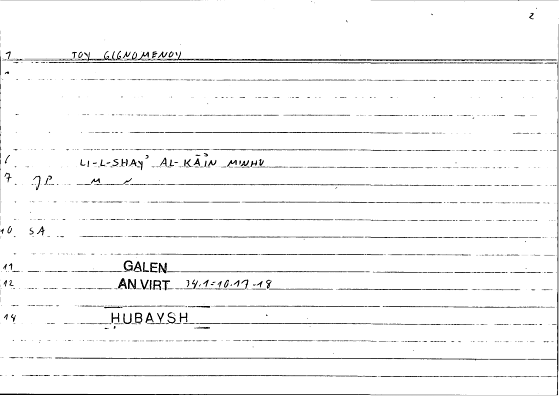 2
1 TOY GIGNOMENOY
6 LI-L-SHAYʾ AL-KĀʾIN MINHU
7 M
10 SA
11 GALEN
12 AN VIRT 34.1=10.17-18
14 ḤUBAYSH